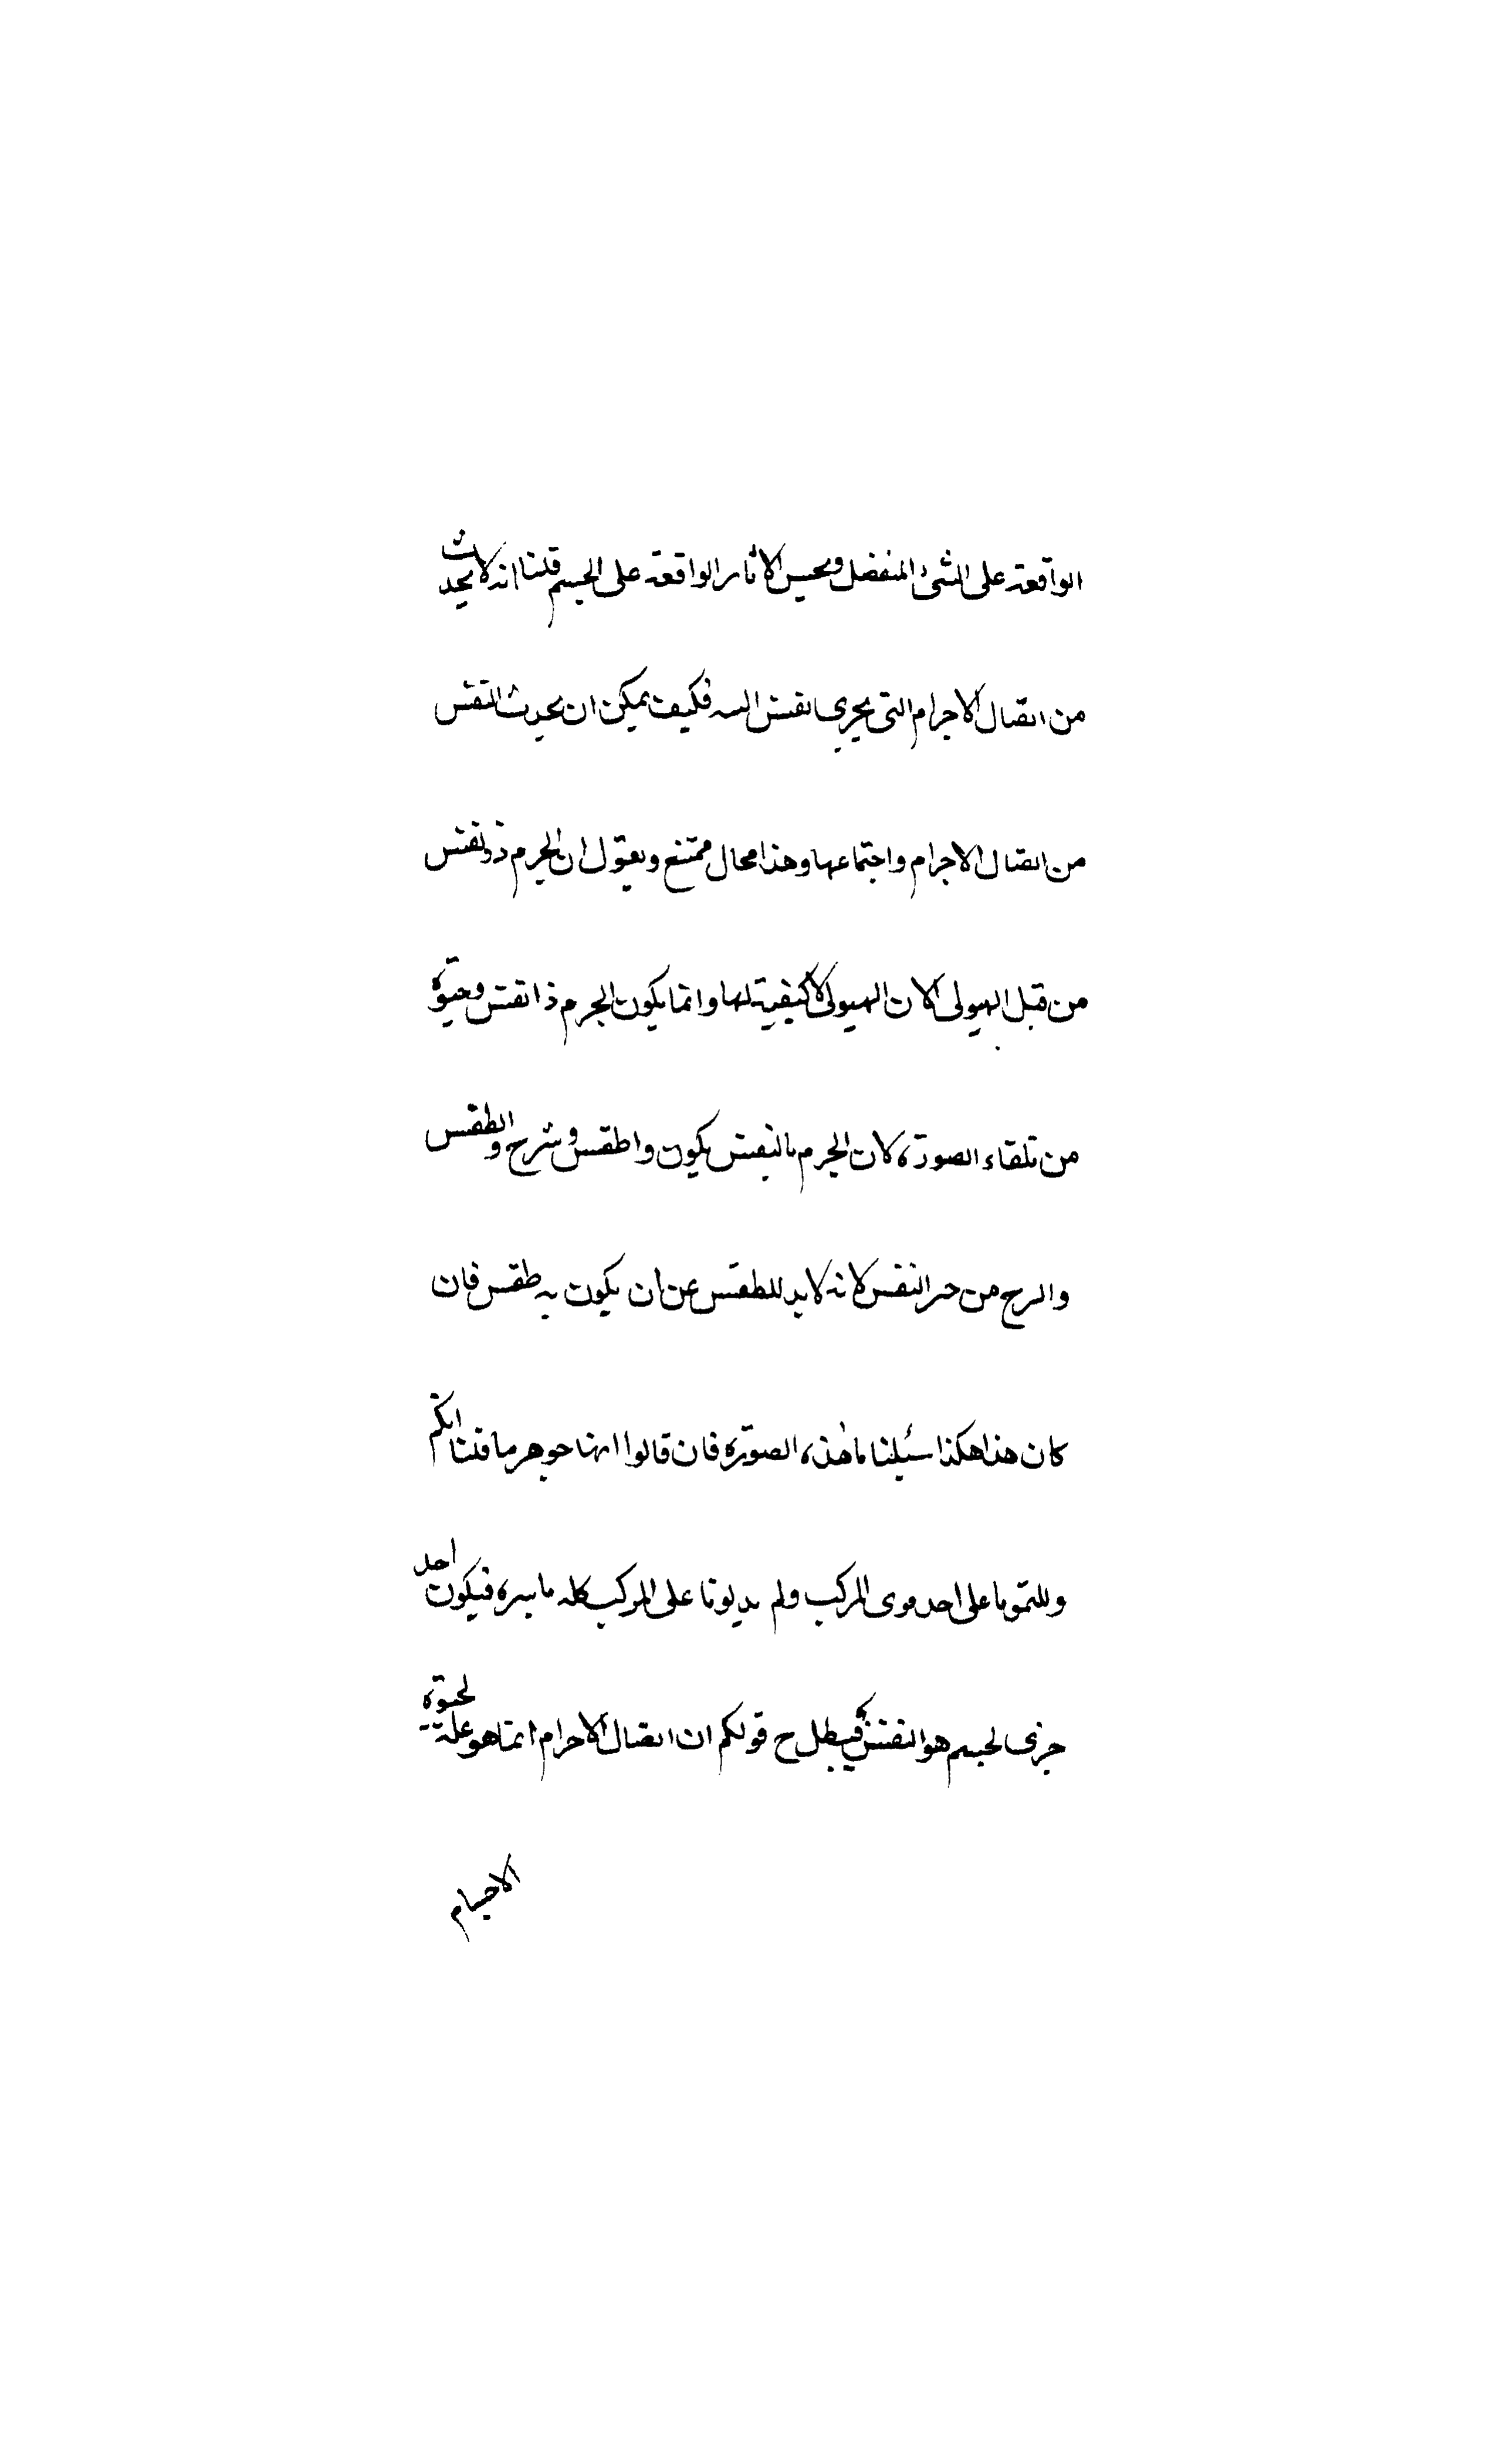 الواقعة على الشئ المنفصل ويحس الاثار الواقعة على الجسم قلنا انه لا يحدث
من اتصال الاجرام التى يجرى نفس السه فكيف يمكن ان يحدث النفس
من اتصال الاجرام واجتماعها وهذا محال ممتنع ويقول ان الجرم ذو نفس
من قبل الهيولى لان الهيولى لا كيفية لها وانما يكون الجرم ذا نفس وحيوة
من تلقاء الصورة لان الجرم بالنفس يكون واطقس وشرح والطقس
والرح من حر النفس لانه لابد للطقس عن ان يكون به طقس فان
كان هذا هكذا سئلنا ما هذه الصورة فان قالوا انها جوهر ما قلنا انكم
على احد المركب ولم يدلونا على المركب كله باسره فيكون احد
جزئى الجسم هو النفس فيبطل ح قولكم ان اتصال الاجرام انما هو علة لحيوة
الاجسام